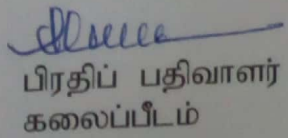 பிரதிப் பதிவாளர்
கலைப்பீடம்